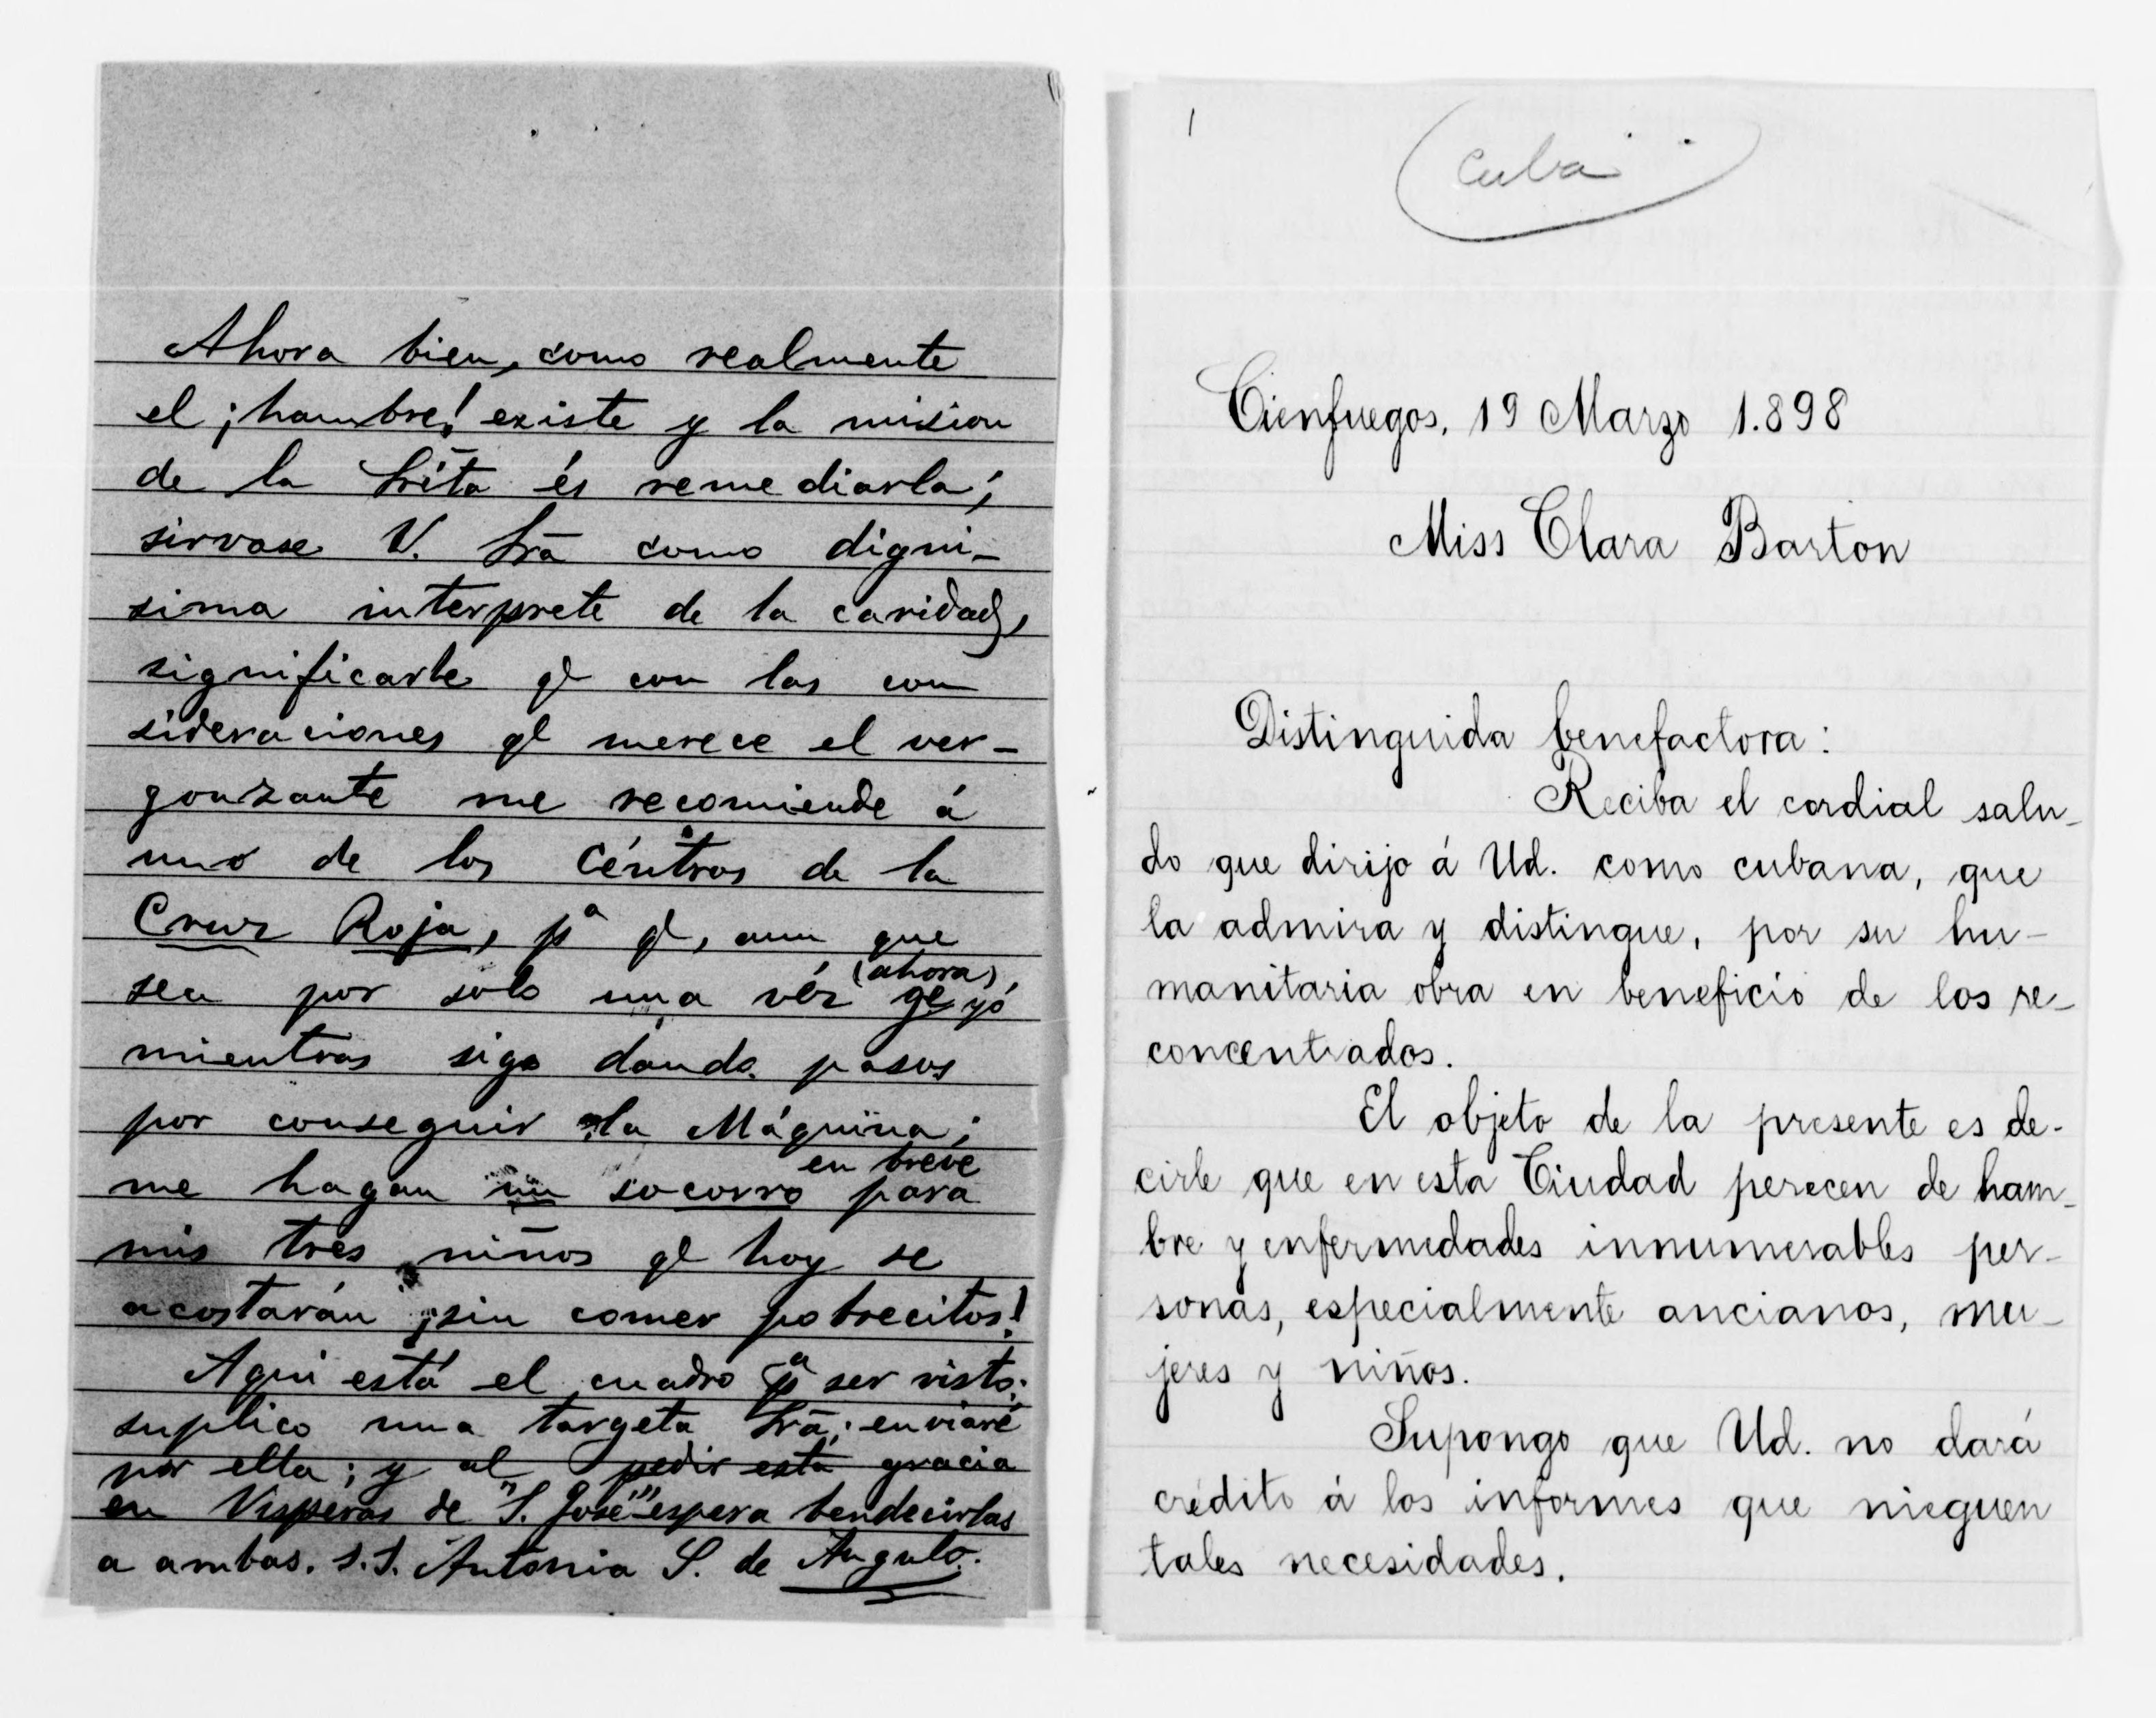 Ahora bien, como realmente
el ¡hambre! existe y la mision
de la Srita és remediarla;
sirvase V. Srā como digni-
sima interprete de la caridad,
significarle qe con las con
sideraciones qe merece el ver-
gonzante me recomiende á
uno de los Céntros de la
Cruz Roja, pa qe, aun que
sea por solo una véz (ahora), qe yó
mientras sigo dando pasos
por conseguir la Máquina;
me hagan un socorro en breve para
mis tres niños qe hoy se
acostarán ¡sin comer pobrecitos!
Aqui está el cuadro pa ser visto;
suplico una targeta Srā; enviaré
por ella; y al pedir esta gracia
en Visperas de "S. José" espera bendecirlas
a ambas. S.S. Antonia S. de Angulo.
1
Cuba
Cienfuegos, 19 Marzo 1.898
Miss Clara Barton
Distinguida benefactora:
Reciba el cordial salu-
do que dirijo á Ud. como cubana, que
la admira y distingue, por su hu-
manitaria obra en beneficio de los re-
concentrados.
El objeto de la presente es de-
cirle que en esta Ciudad perecen de ham-
bre y enfermedades innumerables per-
sonas, especialmente ancianos, mu-
jeres y niños.
Supongo que Ud. no dará
crédito á los informes que nieguen
tales necesidades.